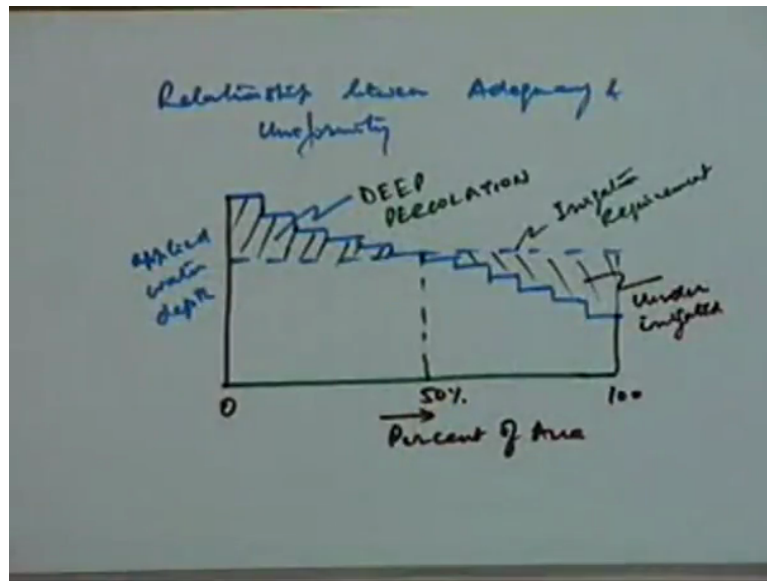 Relationship between Adequacy &
Uniformity
DEEP
PERCOLATION
Irrigation
Requirement
applied
water
depth
Under
irrigated
0
50%.
100
Percent of Area